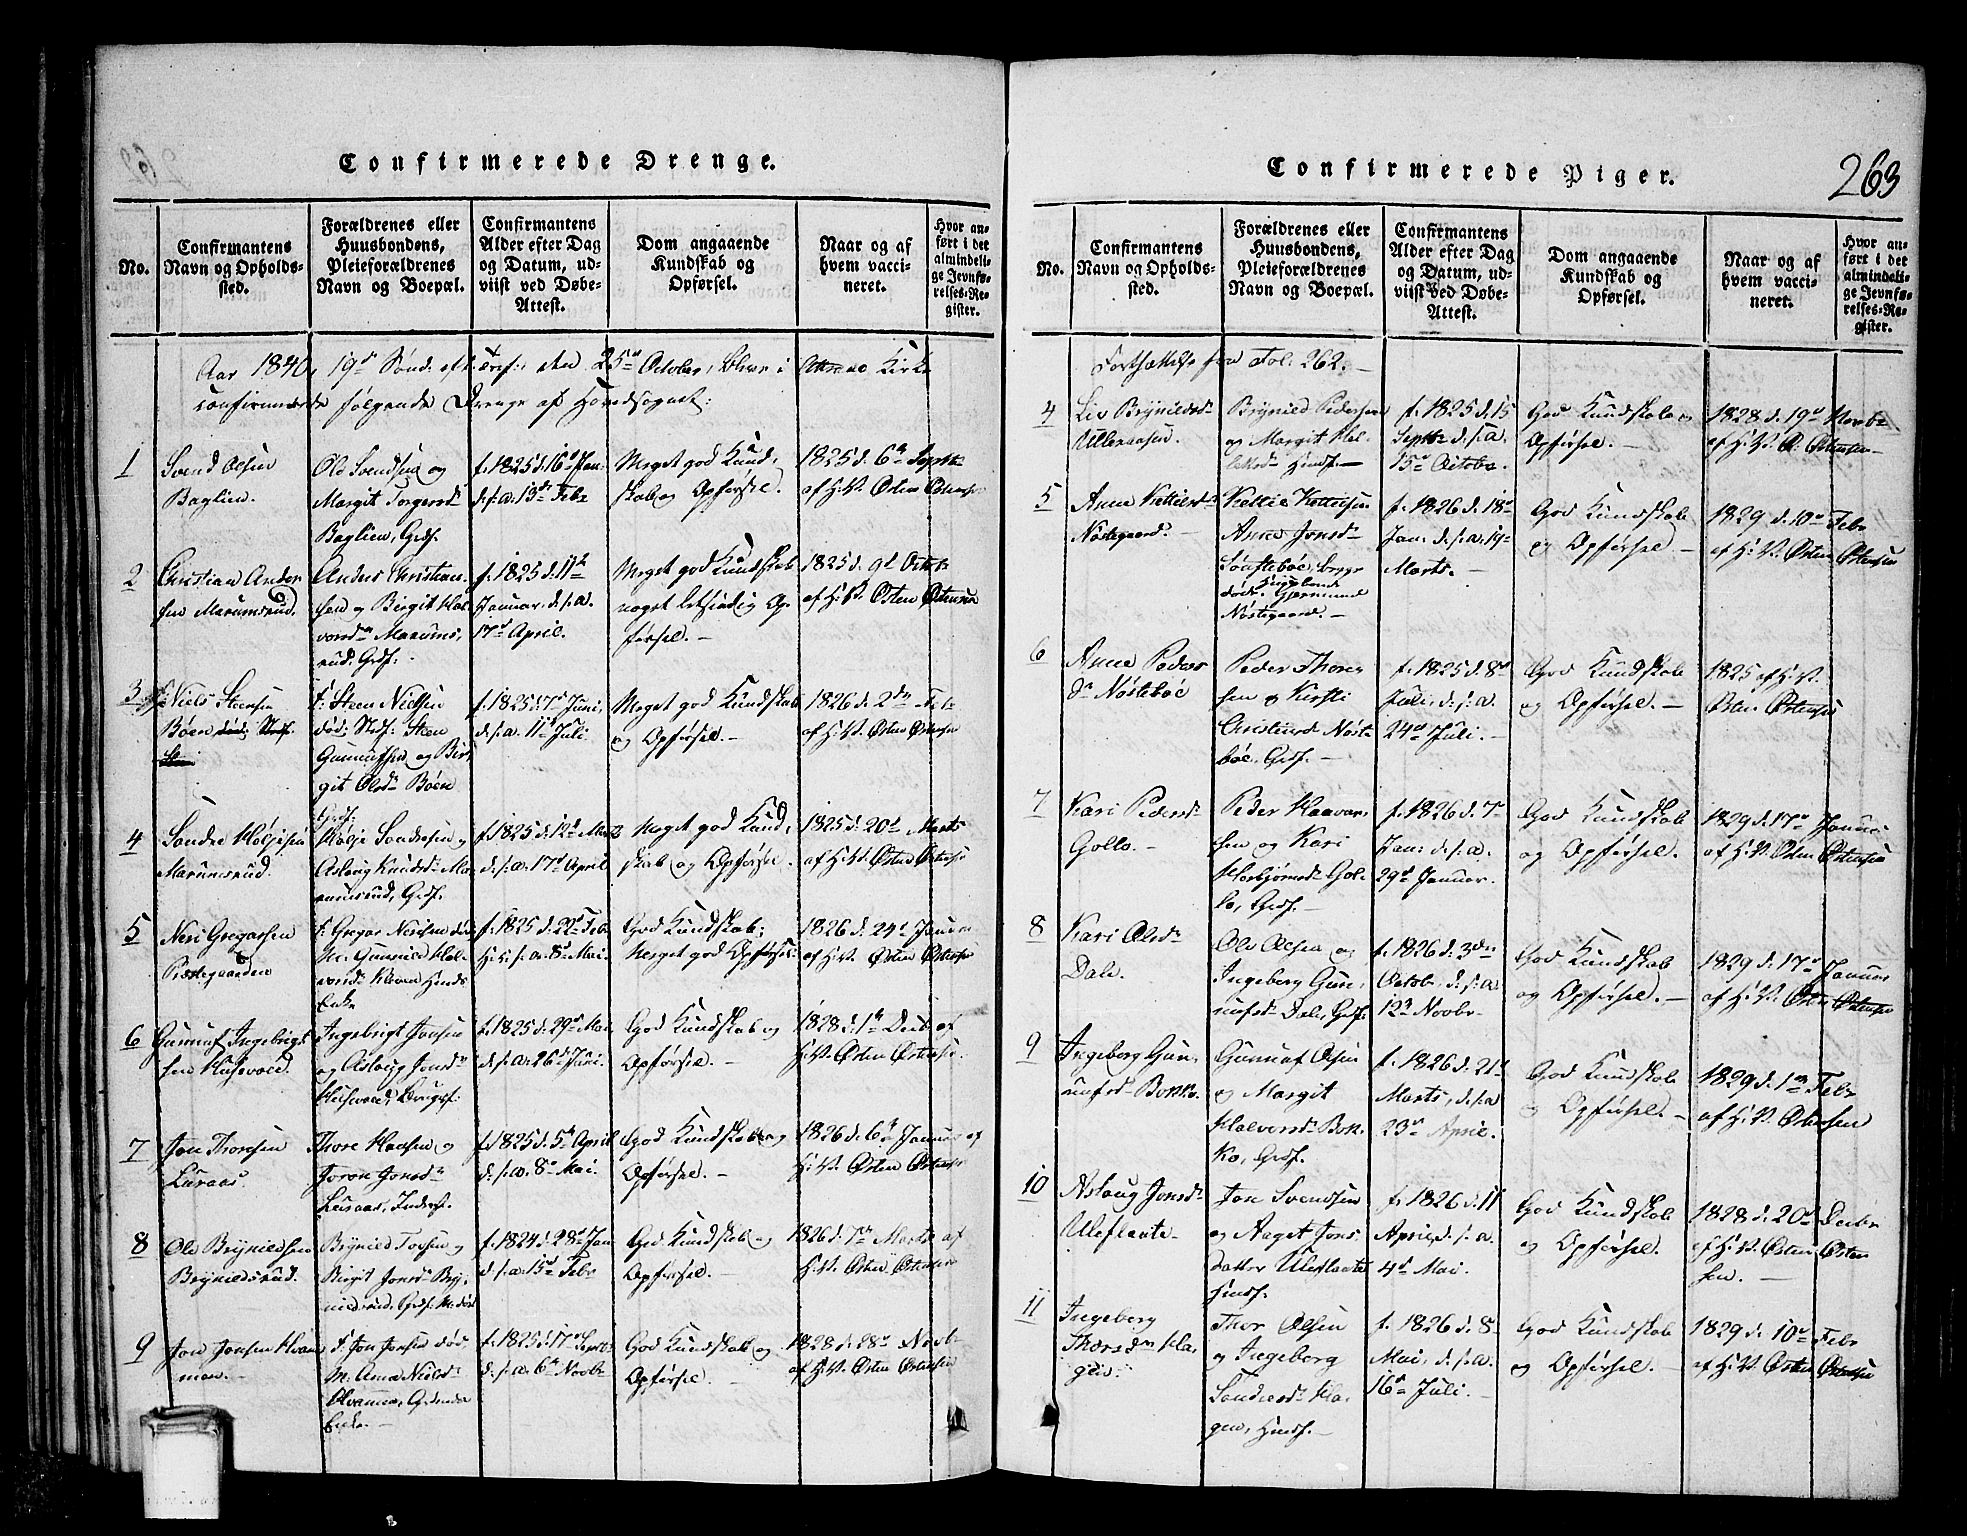 Confirmerede Drenge.
No.
Confirmantens
Navn og Opholds-
sted.
Forældrenes eller
Huusbondens,
Pleieforældrenes
Navn og Boepæl.
Confirmantens
Alder efter Dag
og Datum, ud-
viist ved Døbe-
Attest.
Dom angaaende
Kundskab og
Opførsel.
Naar og af
hvem vacci-
neret.
Hvor an-
ført i det
almindeli-
ge Jevnfø-
relses-Re-
gister.
Aar 1840, 19de Sønd: eft: Tref:, den 25de October, blev i Kirke
confirmerede følgende Drenge af Hovedsognet:
1
Svend Olsen
Baglien.
Ole Svendsen og
Margit Torgersdr
Baglien, Grdf.
f. 1825 d. 16d Jan:
d. s. a. 13de Febr
Meget god Kund,
skab og Opførsel.
1825 d. 6te Septbr
af H. V. Østen Østensen
2
Christian Ander
sen Marumsrud.
Anders Christian
sen og Birgit Hal
vorsdr Maarums,
rud. Grdf.
f. 1825 d. 11te
Januar, d. s. a.
17d April.
Meget god Kundskab
noget letsindig Op
førsel. –
1825 d. 9d Octob
af H. V. Østen Østensen
3
Niels Steensen
Bøen
F: Steen Nielsen
død: Stedf: Steen
Gunnufsen og Bir
git Olsdr Bøen
Grdf.
f. 1825 d. 17d Juni,
d. s. a. 11d Juli.
Meget god Kundskab
og Opførsel. –
1826 d. 2den Feb
af H. V. Østen Østensen
4
Sondre Høljesen
Marumsrud.
Hølje Sondresen og
Aslaug Knudsdr Ma
rumsrud, Grdf.
f. 1825 d. 12d Marz
d. s. a. 17d April
Meget god Kund,
skab og Opførsel.
1825 d. 20d Marts
af H. V. Østen Østensen
5
Neri Gregarsen
Præstegaarden
F: Gregar Nerisen død
M. Gunnild Hal
vorsdr Kleven Hmds
Enke
f. 1825 d. 22d Febr
H. i. s. a. 8d Mai.
God Kundskab;
Meget god Opførsel.
1826 d. 24d Januar
af H. V. Østen Østensen
6
Gunnuf Ingebrigt
sen Husevold.
Ingebrigt Jonsen
og Aslaug Jonsdr
Husevold, Brugsf.
f. 1825 d. 29d Mai
d. s. a. 26d Juni.
God Kundskab og
Opførsel. –
1828 d. 1te Decbr af
H. V. Østen Østensen.
7
Jon Thoresen
Luraas.
Thore Hansen og
Joron Jonsdr
Luraas, Inderf.
f. 1825 d. 5te April
d. s. a. 8d Mai.
God Kundskab og
Opførsel. –
1826 d. 6te Januar af
H. V. Østen Østensen
8
Ole Brynildsen
Brynildsrud.
Brynild Torsen og
Birgit Jonsdr Bry,
nildsrud, Grdf. M. død
f. 1824 d. 28d Jan
d. s. a. 15d Febr
God Kundskab og
Opførsel. –
1826 d. 7de Marts af
H. V. Østen Østensen
9
Jon Jonsen Hvam
men. –
F. Jon Jonsen død,
M. Anne Nielsdr
Hvammen, Grdmds
Enke. –
f. 1825 d. 17d Septbr
d. s. a. 6te Novbr
God Kundskab og
Opførsel. –
1828 d. 28d Novbr
af H. V. Østen Østensen
Confirmerede Piger.
263
No.
Confirmantens
Navn og Opholds-
sted.
Forældrenes eller
Huusbondens,
Pleieforældrenes
Navn og Boepæl.
Confirmantens
Alder efter Dag
og Datum, ud-
viist ved Døbe-
Attest.
Dom angaaende
Kundskab og
Opførsel.
Naar og af
hvem vacci-
neret.
Hvor an-
ført i det
almindeli-
ge Jevnfø-
relses-Re-
gister.
Fortsættelse fra Fol: 262. –
4
Liv Brynildsdr
Brynild Pedersen
og Margit Hel
Hmdf. –
f. 1825 d. 15
Septbr d. s. a.
15d Octobr.
God Kundskab og
Opførsel. –
1828 d. 19d Novbr
af H. V. Ø. Østensen –
5
Anne Kettilsdr
Nøstegaard.
Kettil Kettilsen
Anne Jonsdr
død.
Nøstegaard.
f. 1826 d. 18d
Jan: d. s. a. 19d
Marts. –
God Kundskab
og Opførsel –
1829 d. 10d Febr
af H. V. Østen Østensen
6
Anne Peders
dr Nøstebøe
Peder Thores
sen og Kirsti
Christiansdr Nøste
bøe, Grdf. –
f. 1825 d. 8d
Juli, d. s. a.
24d Juli. –
God Kundskab
og Opførsel. –
1825 af H. V.
Østen Østensen
7
Kari Pedersdr
Gollo. –
Peder Haavar
sen og Kari
Herbjørnsdr Gol
lo, Grdf. –
f. 1826 d. 7d
Jan: d. s. a.
29d Januar.
God Kundskab
og Opførsel.
1829 d. 17d Januar
af H. V. Østen Østensen
8
Kari Olsdr
Dale.
Ole Olsen og
Ingeborg Gun
nufsdr Dale, Grdf.
f. 1826 d. 3die
Octob. d. s. a
12te Novbr
God Kundskab
og Opførsel. –
1829 d. 17d Januar
af H. V. Østen Østensen
9
Ingeborg Gun,
nufsdr Bokko.
Gunnuf Olsen
og Margit
Halvorsdr Bok
ko, Grdf.
f. 1826 d. 21d
Marts, d. s. a
23d April.
God Kundskab
og Opførsel. –
1829 d. 1ste Febr
af H. V. Østensen
10
Aslaug Jonsdr
Uleflaate
Jon Svendsen
og Aaget Jons
datter Uleflaate
Hmdf.
f. 1826 d. 11
April, d. s. a.
4d Mai.
God Kundskab
og Opførsel.
1828 d. 20d Decbr
af H. V. Østen Østen
sen. –
11
Ingeborg
Thorsdr Ha,
gen.
Thor Olsen
og Ingeborg
Sondresdr Ha
gen, Hmdf. –
f. 1826 d. 8
Mai, d. s. a.
16d Juli. –
God Kundskab
og Opførsel. –
1829 d. 10d Febr
af H. V. Østen Østensen